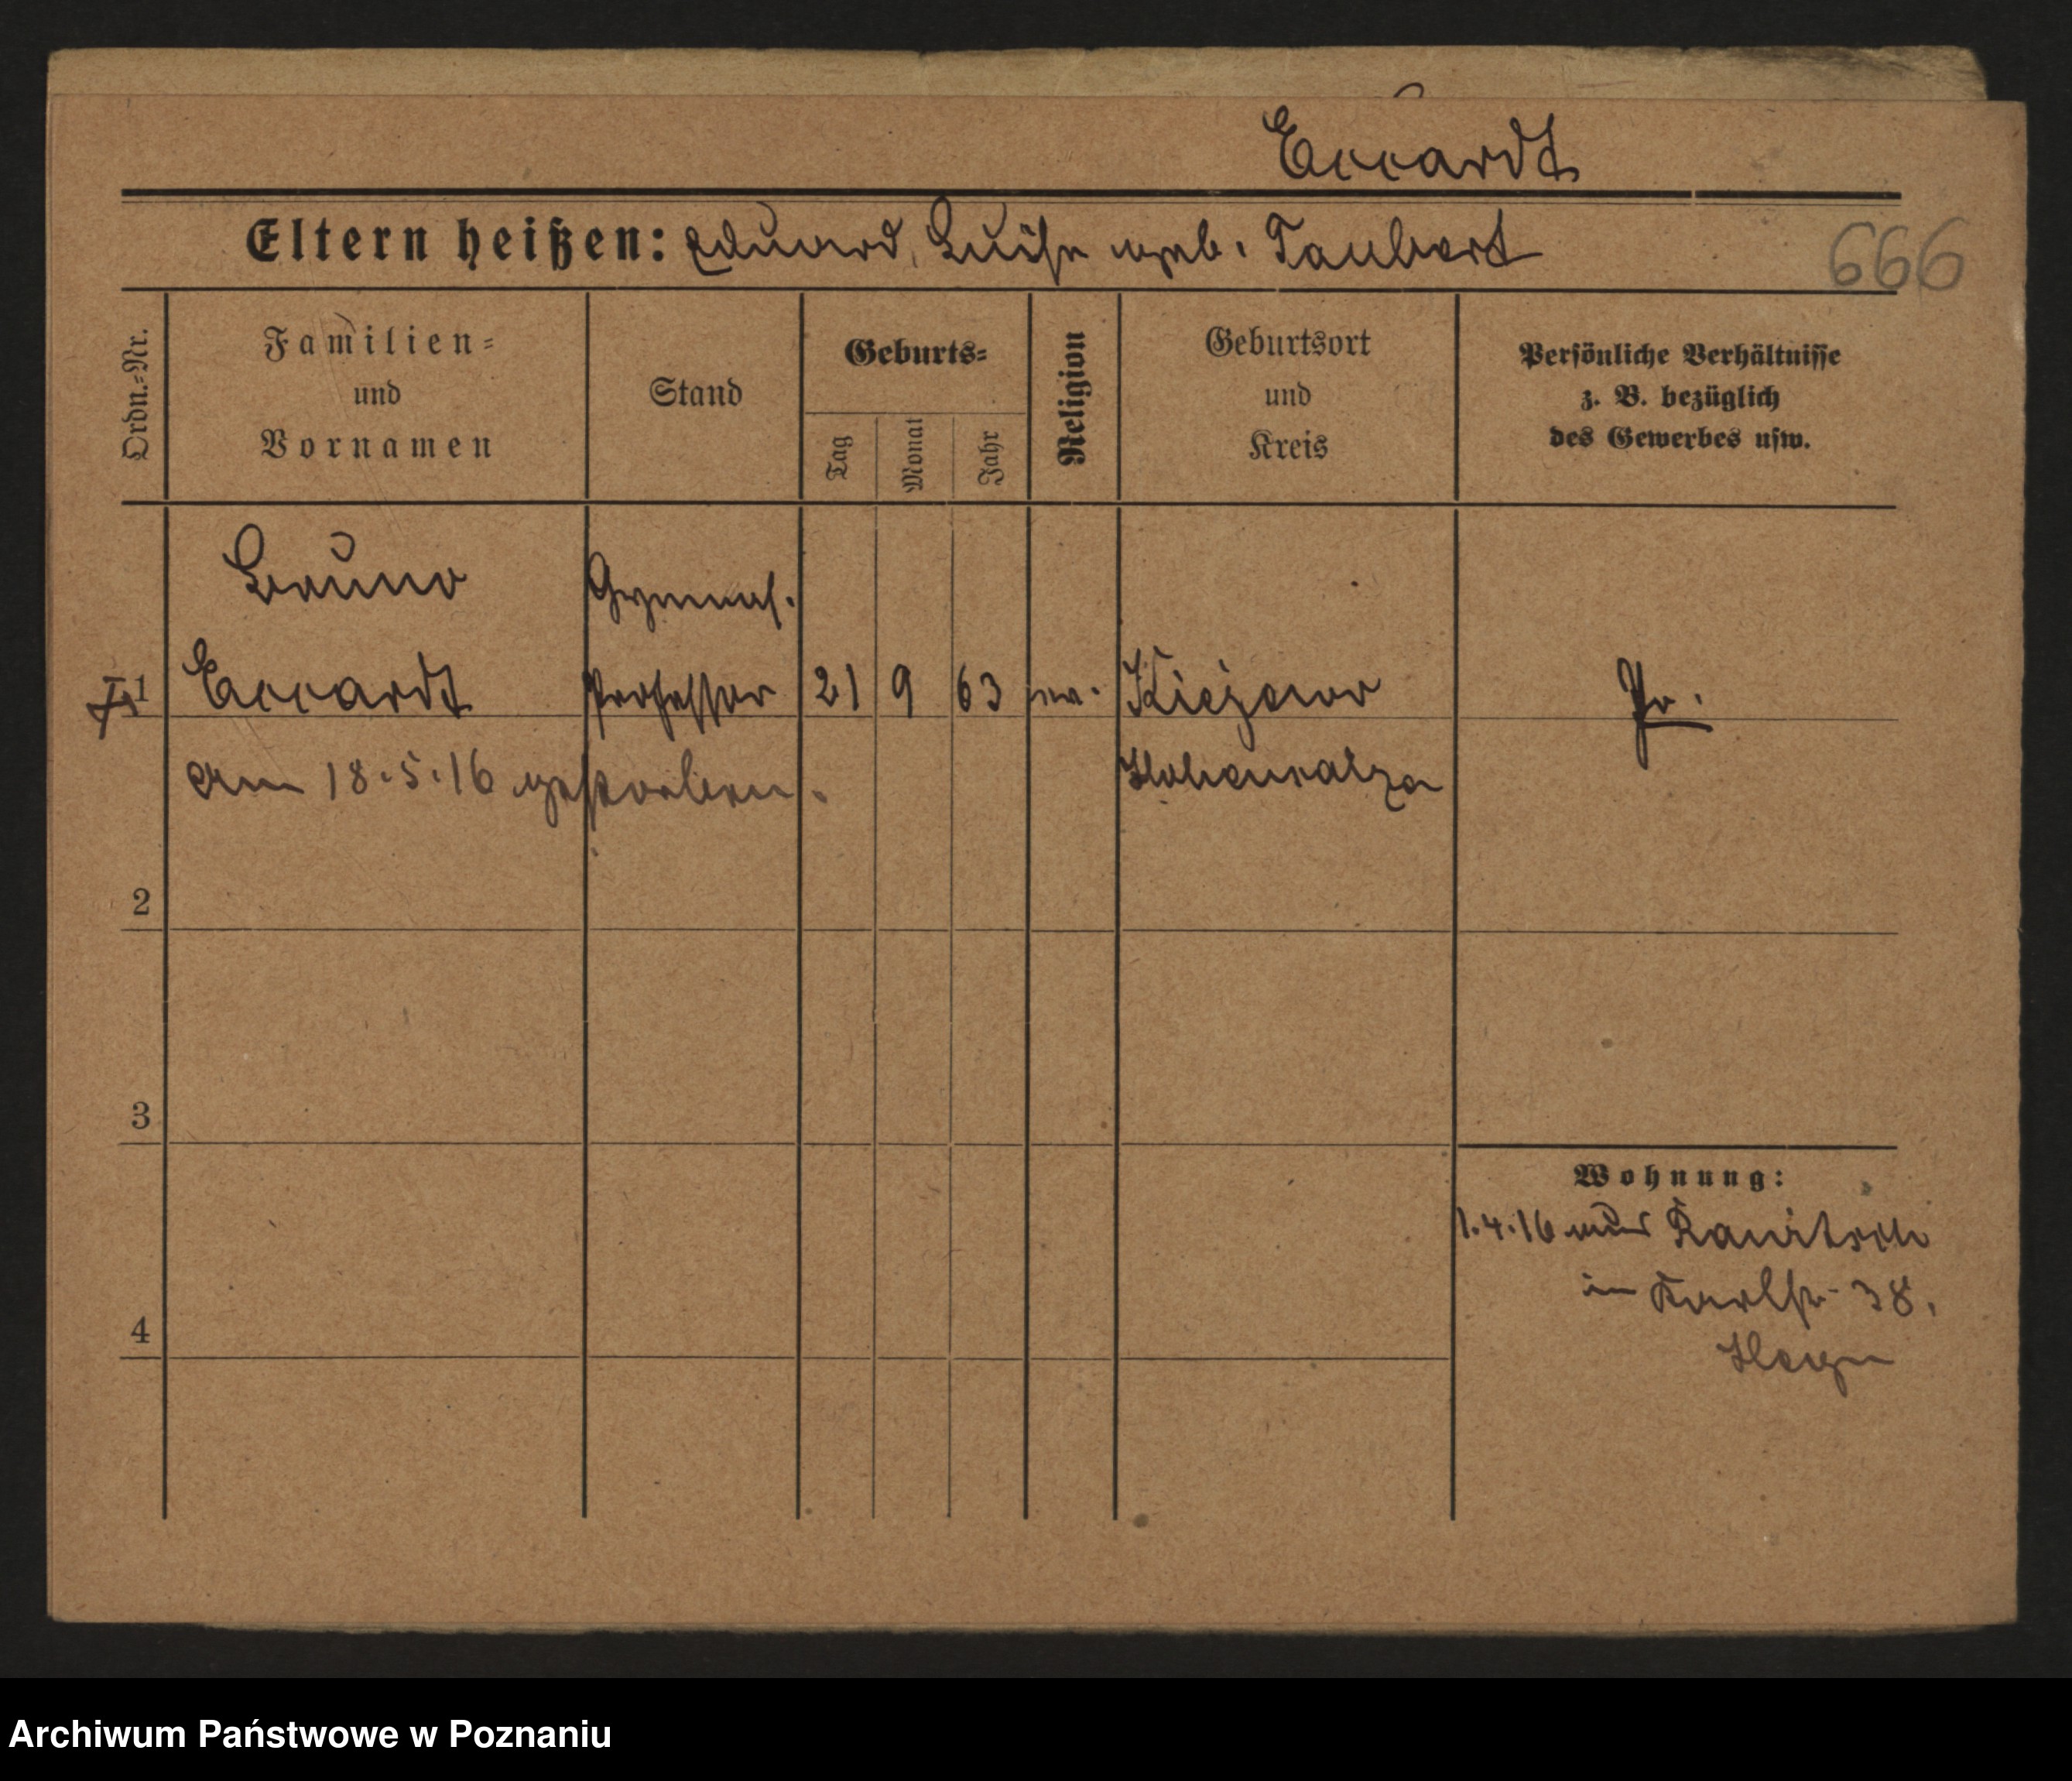 Eccardt
Eltern heißen: Eduard, Luise geb. Taubert
666
Ordn.=Nr.
Familien=
und
Vornamen
Stand
Geburts=
Tag
Monat
Jahr
Religion
Geburtsort
und
Kreis
Persönliche Verhältnisse
z. B. bezüglich
des Gewerbes usw.
Bruno Gymnas.
1 Eccardt Professor 21 9 63 ev. Pr.
am 18.5.16 gestorben. Hohensalza
2
3
4
Wohnung:
1.4.16 aus
in Karlstr. 38.
Archiwum Państwowe w Poznaniu